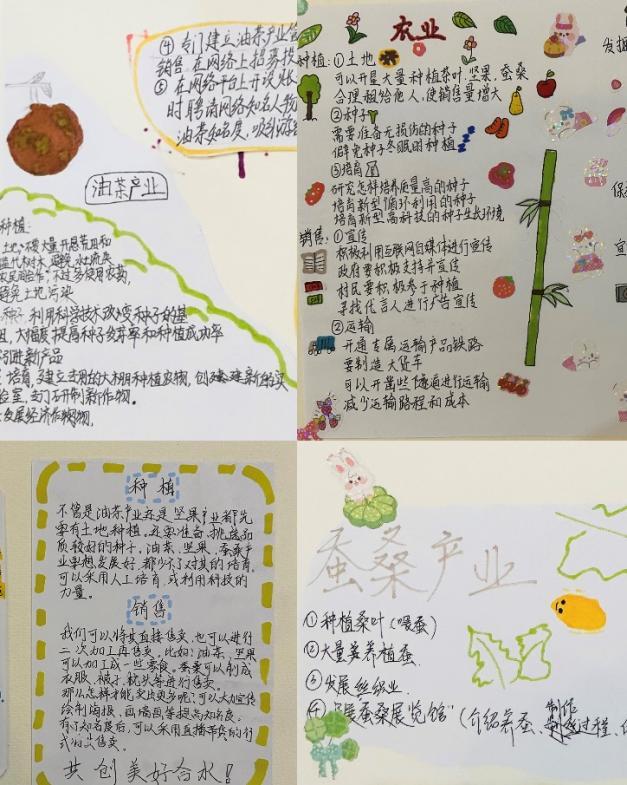 ④ 专门建立油茶产业
销售，在网络上招募
⑤ 在网络平台上开设
时聘请网络知名人
油茶知名度，吸引
油茶产业
种植：
土地：
农民
避免土地污染
种子：利用科学技术改变种子的基
大幅度提高种子发芽率和种植成功率
引进新产品
培育：建立专用的大棚种植农物，创建
验室，专门研制新作物。
发展经济作物
农业
种植：①土地
可以开垦大量种植茶叶、坚果、蚕桑
合理租给他人，使销售量增大
②种子
需要准备无损伤的种子
避免种子冬眠时种植
③培育
研究怎样培养质量高的种子
培育新型循环利用的种子
培育新型高科技的种子生长环境
销售：①宣传
积极利用互联网自媒体进行宣传
政府要积极支持并宣传
村民要积极参于种植
寻找代言人进行广告宣传
②运输
开通专属运输产品铁路
要制造大货车
可以开凿些隧道进行运输
减少运输路程和成本
种植
不管是油茶产业还是坚果产业都先
要有土地种植，还要准备、挑选品
质较好的种子。油茶、坚果、蚕桑产
业要想发展好，都少不了对其的培育，
可以采用人工培育，或利用科技的
力量。
销售
我们可以将其直接售卖，也可以进行
二次加工再售卖，比如：油茶、坚果
可以加工成一些零食。蚕桑可以制成
衣服、被子、枕头等进行售卖。
那么怎样才能卖出更多呢？可以大力宣传
绘制海报，画墙画等提高知名度，
有了知名度后，可以采用直播带货的方
式初次售卖。
共创美好合水！
蚕桑产业
①种植桑叶（喂蚕）
②大量养植蚕
③发展丝织业
④发展蚕桑展览馆（介绍养蚕、制作过程、